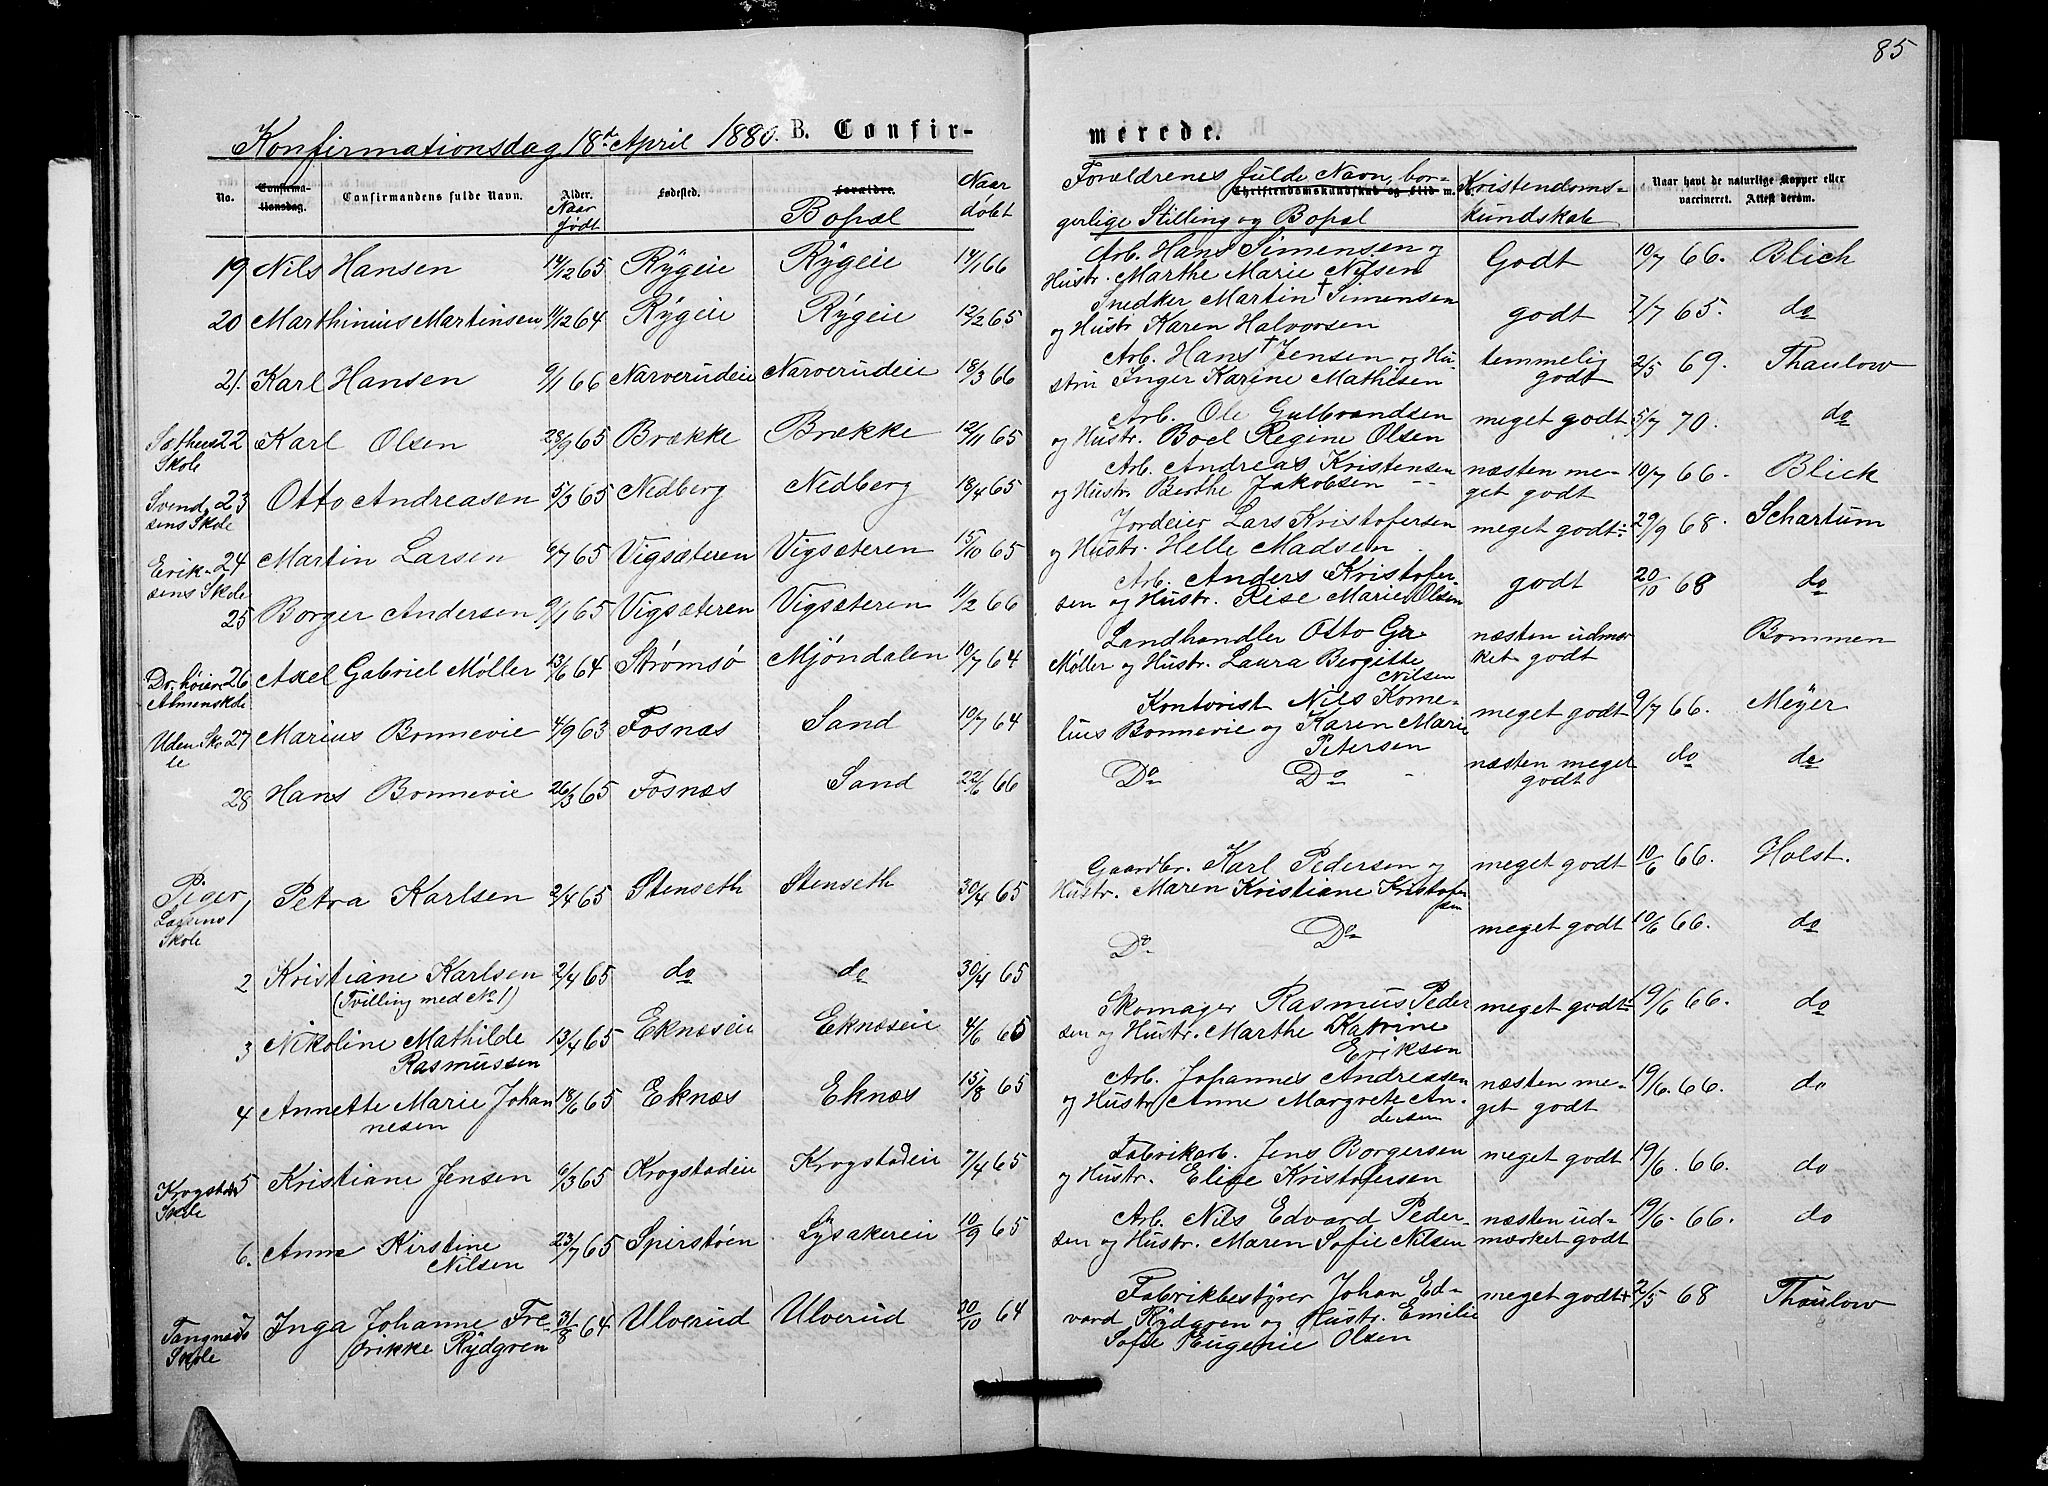 85
Konfirmationsdag 18de April 1880. B. Confir-
merede.
No. Confirma-tionsdag. Confirmandens fulde Navn. Alder. Naar født Fødested. Forældre. Bopæl Naar døbt
Forældrenes fulde Navn, bor- Christendomskundskab og Flid m. Kristendoms- Naar havt de naturlige Kopper eller
gerlige Stilling og Bopæl kundskab vaccineret. Attest derom.
19 Nils Hansen 14/12 65 Rygeie Rygeie 14/1 66 Arb. Hans Simensen og Godt 10/7 66. Blich
Hustr. Marthe Marie Nilsen
20 Marthinius Martinsen 11/12 64 Rygeie Rygeie 12/2 65 Snedker Martin † Simensen godt 7/7 65. do
og Hustr Karen Halvorsen
21. Karl Hansen 9/1 66 Narverudeie Narverudeie 18/3 66 Arb. Hans † Jensen og Hu- temmelig 2/5 69. Thaulow
stru Inger Karine Mathisen godt
Sothus 22 Karl Olsen 28/9 65 Brække Brække 12/11 65 Arb. Ole Gulbrandsen meget godt 5/7 70. do
Skole og Hustr. Boel Regine Olsen
Svend 23 Otto Andreasen 5/3 65 Nedberg Nedberg 18/4 65 Arb. Andreas Kristensen næsten me- 10/7 66. Blick
sens Skole og Hustr. Berthe Jakobsen get godt
Erik- 24 Martin Larsen 9/7 65 Vigsæteren Vigsæteren 15/10 65 Jordeier Lars Kristofersen meget godt 29/9 68. Schartum
sens Skole og Hustr. Helle Madsen
25 Borger Andersen 9/1 65 Vigsæteren Vigsæteren 11/2 66 Arb. Anders Kristofer- godt 20/10 68 do
sen og Hustr. Rise Marie Olsen
Dr. høiere 26 Axel Gabriel Møller 13/6 64 Strømsø Mjöndalen 10/7 64 Landhandler Otto næsten udmær Bommen
Almenskole Møller og Hustr. Laura Bergitte ket godt
Nilsen
Uden Sko 27 Marius Bonnevie 4/9 63 Fosnæs Sand 10/7 64 Kontorist Nils Korne- meget godt 9/7 66. Meyer
le lius Bonnevie og Karen Marie
Petersen
28 Hans Bonnevie 26/3 65 Fosnæs Sand 22/6 66 Do Do næsten meget do do
godt
Piger
Larsens 1 Petra Karlsen 2/4 65 Stenseth Stenseth 30/4 65 Gaardbr. Karl Pedersen og meget godt 10/6 66. Holst.
Skole Hustr. Maren Kristiane Kristofer
sen
2 Kristiane Karlsen 2/4 65 do do 30/4 65 Do Do meget godt 10/6 66. do
(Tvilling med No 1)
3 Nikoline Mathilde 13/4 65 Eknæseie Eknæseie 4/6 65 Skomager Rasmus Peder meget godt 19/6 66. do
Rasmussen sen og Hustr. Marthe Katrine
Eriksen
4 Annette Marie Johan 18/6 65 Eknæs Eknæs 15/8 65 Arb. Johannes Andreasen næsten me- 19/6. 66. do
nesen og Hustr Anne Margrete An- get godt
dersen
Krogstad 5 Kristiane Jensen 6/3 65 Krogstadeie Krogstadeie 7/4 65 Fabrikarb. Jens Borgersen meget godt 19/6. 66. do
Skole og Hustr. Elise Kristofersen
6. Anne Kirstine 23/7 65 Spirstøen Lysakereie 10/9 65 Arb. Nils Edvard Peder- næsten ud- 19/6. 66. do
Nilsen sen og Hustr. Maren Sofie Nilsen mærket godt
Tangneds 7 Inga Johanne Fre- 31/8 64 Ulverud Ulverud 20/10 64 Fabrikbestyrer Johan Ed- meget godt+ 2/5 68 Thaulow
Skole drikke Rydgren vard Rydgren og Hustr. Emilie
Sofie Eugenie Olsen